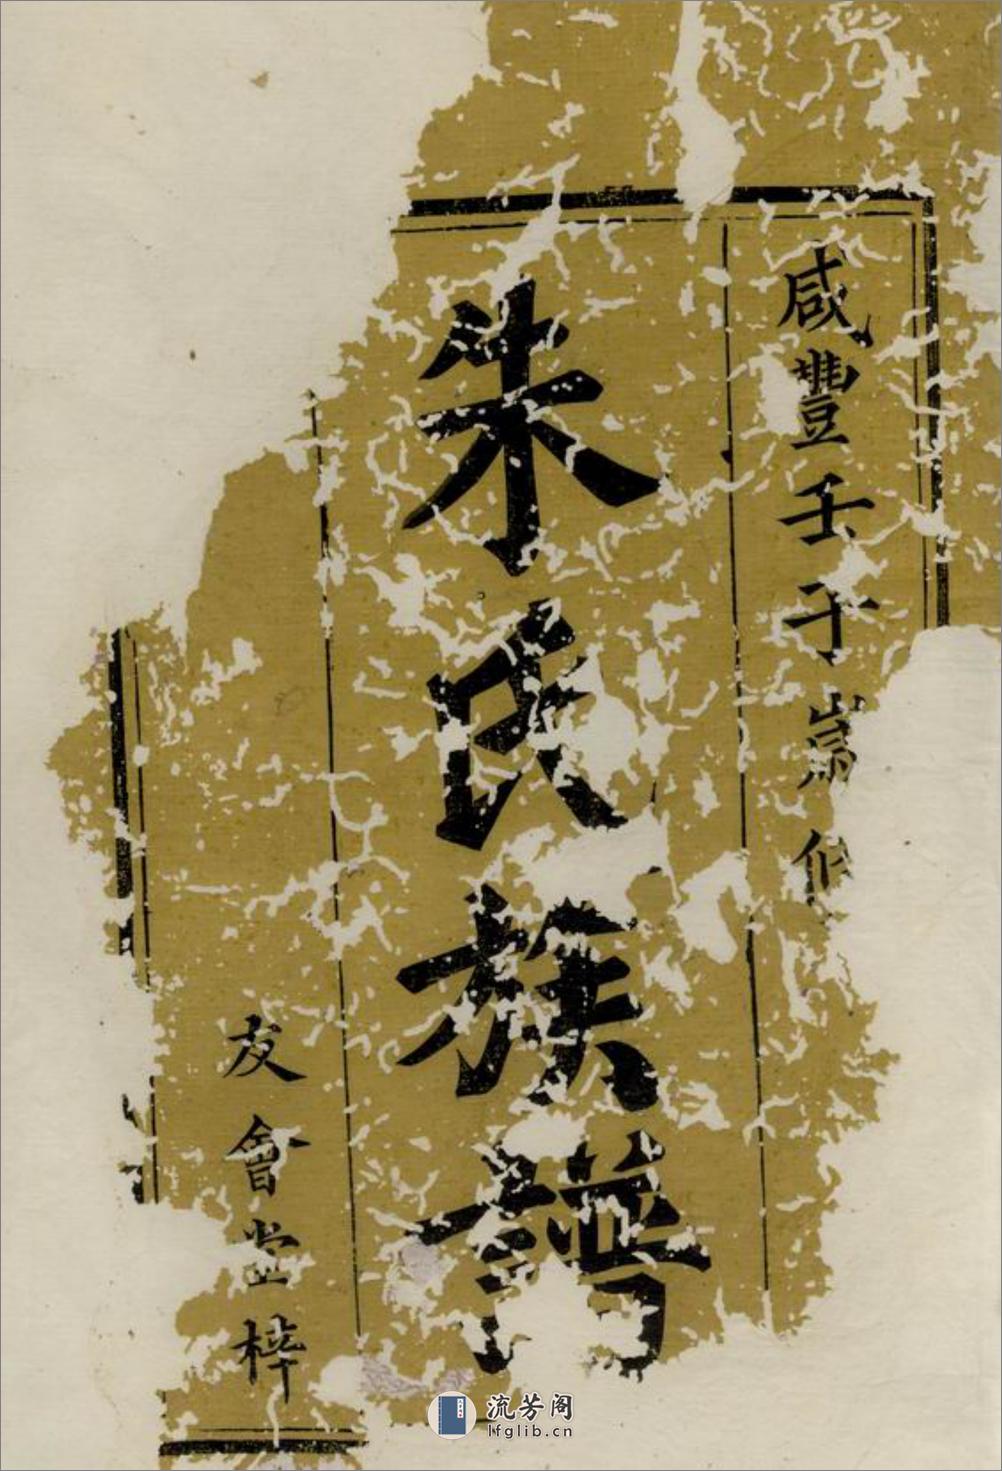 咸豐壬子嵗修
朱氏族譜
友會堂梓
流芳阁
lfglib.cn